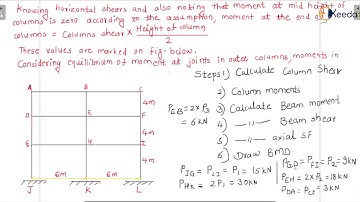 Knowing horizontal shears and also noting that moment at mid height of
columns is zero. according to the assumption, moment at the end of
columns = Columns shear × Height of column
2
These values are marked on fig. below.
Considering equilibrium of moment at joints in outer columns, moments in
Keeda
Steps 1) Calculate Column Shear
2) Column moments
3) Calculate Beam moment
4) —11— Beam shear
5) —11— axial SF
6) Draw BMD
P_EB = 2×P3
= 6 KN
P_JG = P_LI = P1 = 15 KN
P_HK = 2P1 = 30 KN
P_GD = P_FI = P2 = 9 KN
P_EH = 2×P2 = 18 KN
P_DA = P_CF = 3 KN
A
B
D
E
F
G
H
I
J
K
L
4m
4m
4m
6m
6m